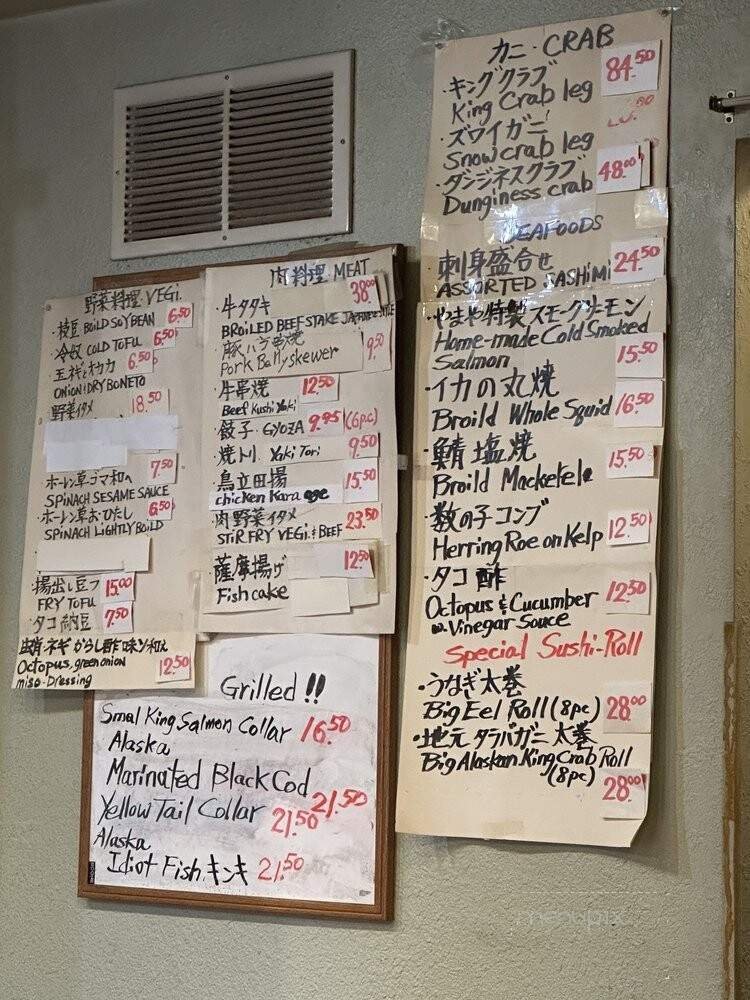 野菜料理・VEGi.
・枝豆 BOiLD SOYBEAN 6.50
・冷奴 COLD TOFU 6.50
6.50
ONiON:DRY BONETO
野菜イタメ 18.50
ホーレン草ゴマ和へ 7.50
SPiNACH SESAME SAUCE
・ホーレン草おひたし 6.50
SPiNACH LiGHTLY BOiLD
・揚出し豆フ 15.00
FRY TOFU
・タコ納豆 7.50
Octopus, green onion
miso-Dressing 12.50
肉料理・MEAT
・牛タタキ 38.00
BROiLED BEEFSTAKE JAPANESE STYLE
豚バラ串焼 9.50
Pork Bellyskewer
・牛串焼 12.50
Beef Kushi Yaki
・餃子・GYOZA 9.95 (6pc)
・焼トリ. Yaki Tori 9.50
・鳥立田揚 15.50
chicken Kara age
・肉野菜イタメ 23.50
STiR FRY VEGi.&BEEF
・薩摩揚げ 12.50
Fish cake
Grilled !!
Smal King Salmon Collar 16.50
Alaska
Marinated Black Cod 21.50
Yellow Tail Collar 21.50
Alaska
Idiot Fish キンキ 21.50
カニ・CRAB
・キングクラブ 84.50
King Crab leg
・ズワイガニ
Snow crab leg
・ダンジネスクラブ 48.00
Dunginess crab
SEAFOODS
・刺身盛合せ 24.50
ASSORTED SASHiMi
・やまや特製スモークサーモン
Home-made Cold Smoked
Salmon 15.50
・イカの丸焼
Broild Whole Squid 16.50
・鯖塩焼
Broild Mackekele 15.50
・数の子コンブ
Herring Roe on Kelp 12.50
・タコ酢
Octopus & Cucumber 12.50
w. Vinegar Souce
Special Sushi-Roll
・うなぎ太巻
Big Eel Roll (8pc) 28.00
・地元タラバガニ太巻
Big Alaskan King Crab Roll
(8pc) 28.00
menupix